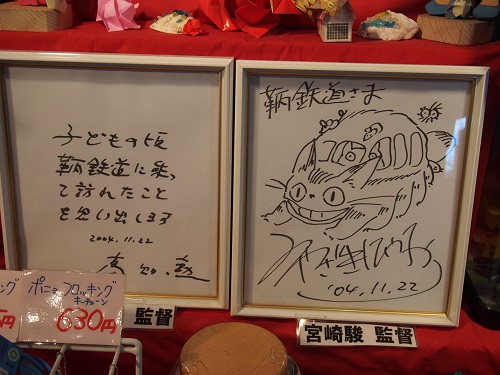 子どもの頃
鞆鉄道に乗っ
て訪れたこと
を思い出します
2004.11.22
鞆鉄道さま
'04.11.22
ポニョフロッキング
キーチェーン
630円
5円
監督
宮崎駿 監督